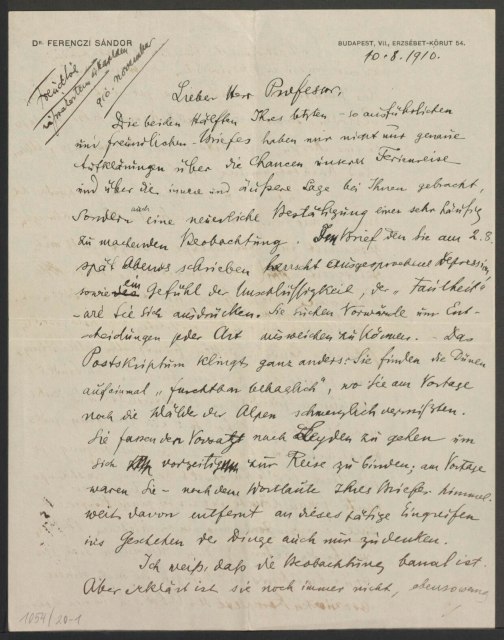 Dr. FERENCZI SÁNDOR
BUDAPEST, VII., ERZSÉBET-KÖRUT 54.
10.8.1910.
910. november
Lieber Herr Professor,
Die beiden Hälften Ihres letzten – so ausführlichen
und freundlichen – Briefes haben mir nicht nur genaue
Aufklärungen über die Chancen unserer Ferienreise
und über die innere und äußere Lage bei Ihnen gebracht,
sondern auch eine neuerliche Bestätigung einer sehr häufig
zu machenden Beobachtung. Im Brief den Sie am 2.8.
spät Abends schrieben herrscht ausgesprochene Depression,
sowie ein Gefühl der Unschlüssigkeit, der „Faulheit"
– wie Sie sich ausdrücken. Sie suchen Vorwände um Ent-
scheidungen jeder Art ausweichen zu können. – Das
Postskriptum klingt ganz anders: Sie finden die Dünen
auf einmal „furchtbar behaglich", wo Sie am Vortage
noch die Wälder der Alpen schmerzlich vermißten.
Sie fassen den Vorsatz nach Leyden zu gehen um
sich vorzeitig zur Reise zu binden; am Vortage
waren Sie – nach dem Wortlaute Ihres Briefes himmel-
weit davon entfernt an dieses tätige Eingreifen
ins Geschehen der Dinge auch nur zu denken.
Ich weiß, daß die Beobachtung banal ist.
Aber erklärt ist sie noch immer nicht, ebensowenig
1054/20-1